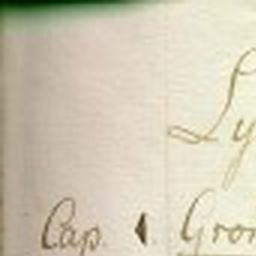 Ly
Cap. Gron